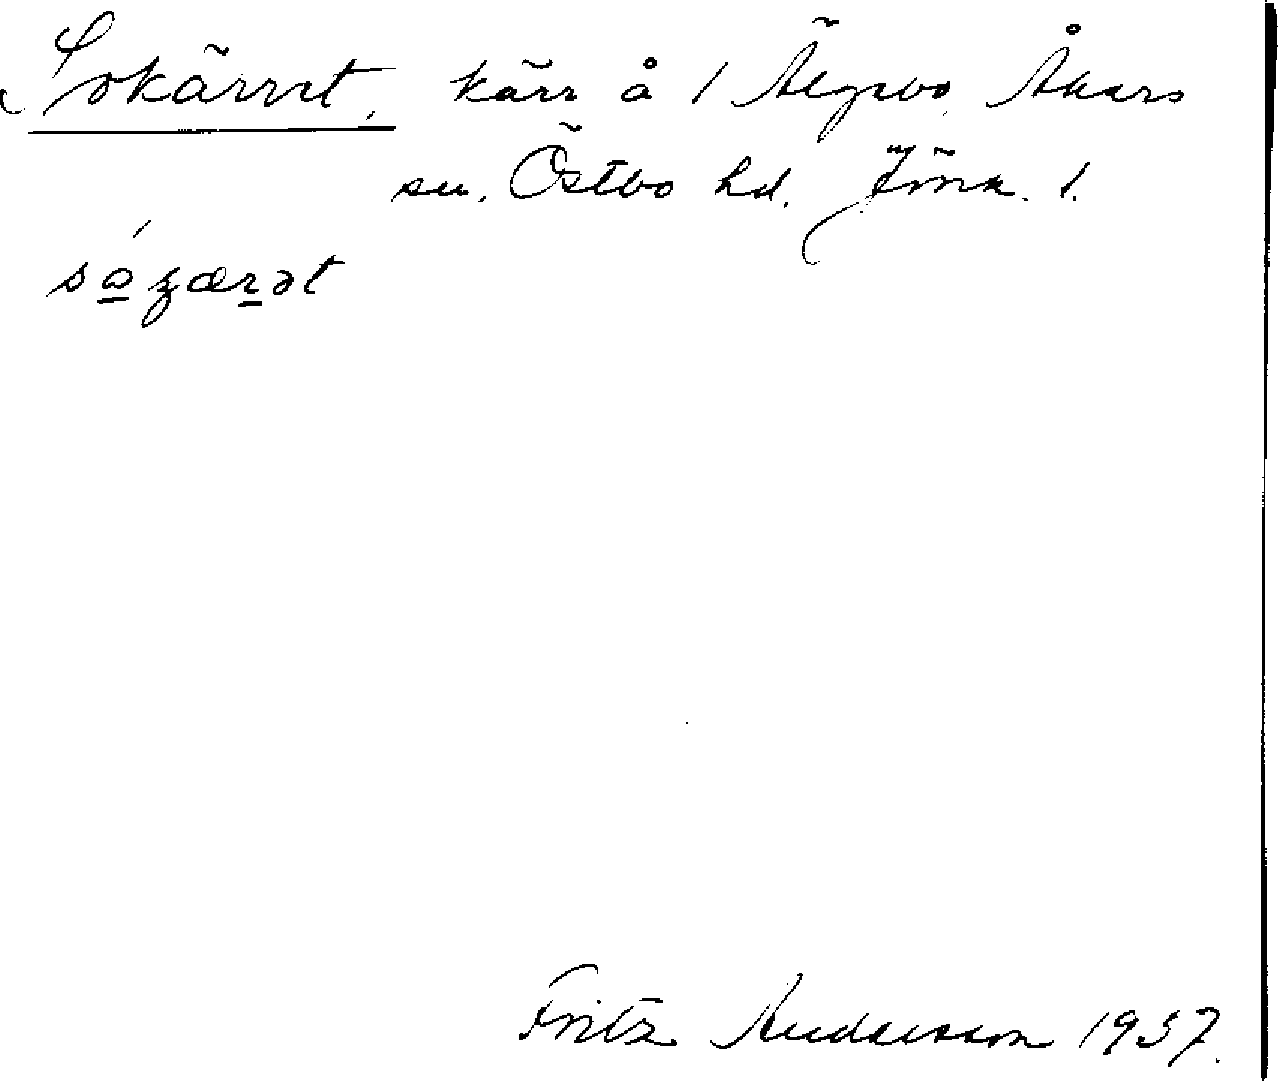 Sokärret, kärr å 1 Älgabo, Åkers
sn. Östbo hd. Jönk. l.
sòʒærət
Fritz Andersson 1937.